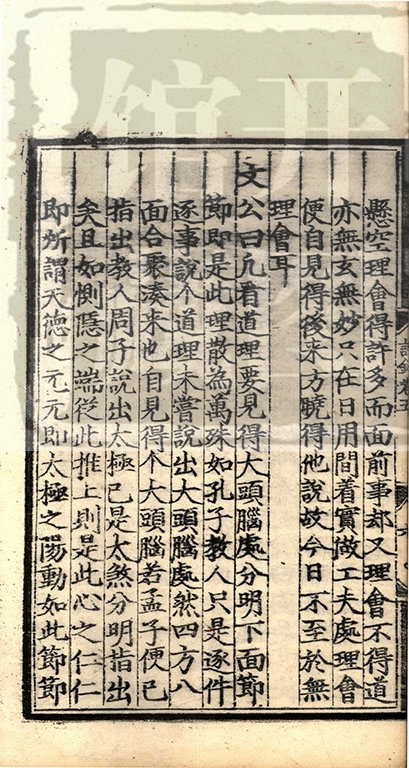 懸空理會得許多而面前事却又理會不得道
亦無玄無妙只在日用間着實做工夫處理會
便自見得後来方曉得他說故今日不至於無
理會耳
文公曰凡看道理要見得大頭腦處分明下面節
節即是此理散為萬殊如孔子教人只是逐件
逐事說个道理未嘗說出大頭腦處然四方八
面合聚湊来也自見得个大頭腦若孟子便已
指出教人周子說出太極已是太煞分明指出
矣且如惻隱之端從此推上則是此心之仁仁
即所謂天德之元元即太極之陽動如此節節